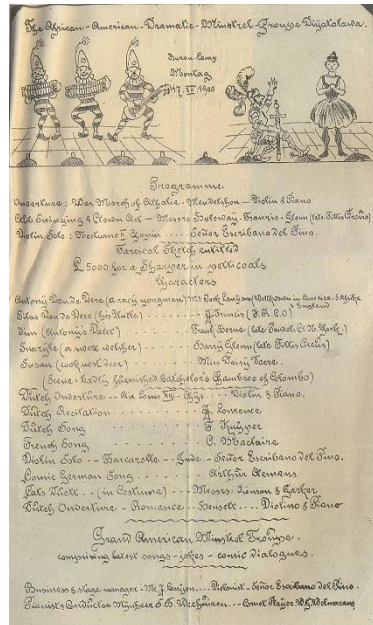 The African-American-Dramatic-Minstrel-Troupe Diyatalawa.
Buren-Camp
Montag
17. XII 1900
Programme.
Ouverture: War March of Athalie - Mendelssohn - Violin & Piano
Clubs Swinging & Clown Act - Messrs - Francis - Glenn (late Fillis Circus)
Violin Solo: Nocturne II Chopin .... Señor Escribano del Pino.
Farcical Sketch entitled
£ 5000 for a Sharper in petticoats
Characters
Antony Van de Vere (a racy youngman) Mr Jack (Wellknown in America - Africa & England
Silas Van de Vere (his Uncle) ..... J. Francis
Jim (Antony's Valet) ..... Frank
(a welsher) ..... Harry Glenn (late Fillis Circus)
Susan (cook next door) ..... Miss Daisy
(Scene: badly furnished Batchelor's Chambres of Colombo)
Dutch Ouverture - Air Louis XIII - Ghys ... Violin & Piano.
Dutch Recitation ..... J. Lourence
Dutch Song ..... F. Kuijper
French Song ..... C. Maclaire
Violin Solo - - Barcarolle - - Señor Escribano del Pino.
Comic German Song ..... Arthur Clemens
Duett .. (in Costume) .... Messrs. &
Dutch Ouverture - Romance - .... Violino & Piano
Grand American Minstrel Troupe.
comprising latest songs - jokes - comic dialogues.
Business & stage manager - Mr J. ... Violinist - Señor Escribano del Pino.
Pianist & Conductor Mijnheer